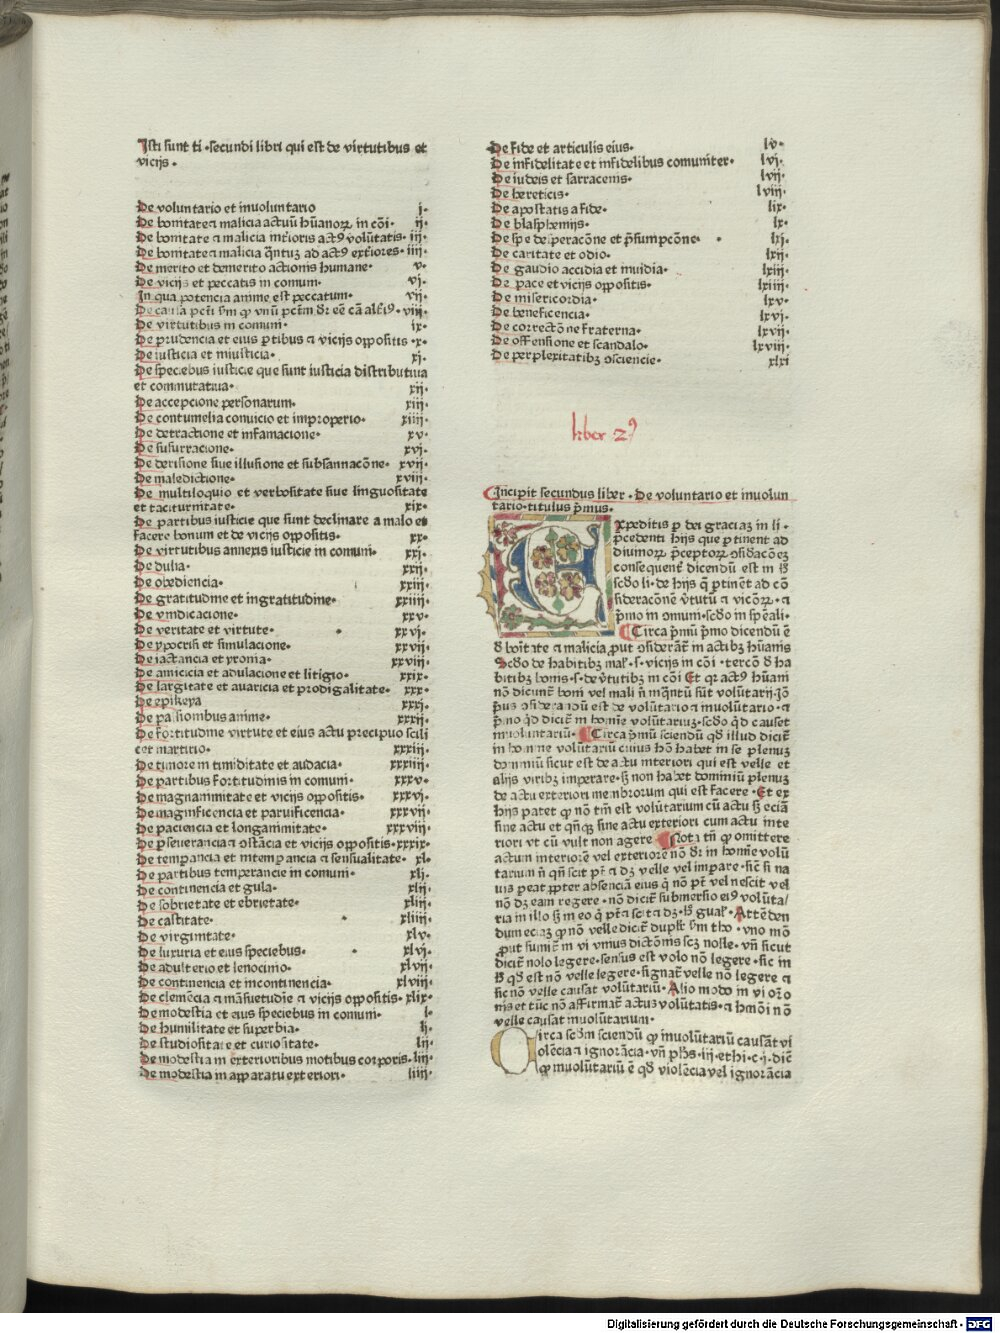 Isti sunt ti .secundi libri qui est de virtutibus et
vicijs .
De voluntario et inuoluntario j.
De bonitate ⁊ malicia actuū hūanoꝝ in cōi. ij.
De bonitate ⁊ malicia int̄ioris actꝰ volūtatis. iij.
De bonitate ⁊ malicia q̄ntuꝫ ad actꝰ ext̄iores. iiij.
De merito et demerito actionis humane. v.
De vicijs et peccatis in comuni. vj.
In qua potencia anime est peccatum. vij.
De causa pct̄i viij.
De virtutibus in comuni. ix.
De prudencia et eius ꝑtibus ⁊ vicijs oppositis .x.
De iusticia et iniusticia. xj.
De speciebus iusticie que sunt iusticia distributiua
et commutatiua. xij.
De accepcione personarum. xiij.
De contumelia conuicio et improperio. xiiij.
De detractione et infamacione. xv.
De susurracione. xvj.
De derisione siue illusione et subsannacōne. xvij.
De maledictione. xviij.
De multiloquio et verbositate siue linguositate
et taciturnitate. xix.
De partibus iusticie que sunt declinare a malo et
facere bonum et de vicijs oppositis. xx.
De virtutibus annexis iusticie in comuni. xxj.
De dulia. xxij.
De obediencia. xxiij.
De gratitudine et ingratitudine. xxiiij.
De vindicacione. xxv.
De veritate et virtute. xxvj.
De ypocrisi et simulacione. xxvij.
De iactancia et yronia. xxviij.
De amicicia et adulacione et litigio. xxix.
De largitate et auaricia et prodigalitate. xxx.
De epikeya xxxj.
De passionibus anime. xxxij.
De fortitudine virtute et eius actu precipuo scili
cet martirio. xxxiij.
De timore in timiditate et audacia. xxxiiij.
De partibus fortitudinis in comuni. xxxv.
De magnanimitate et vicijs oppositis. xxxvj.
De magnificencia et paruificencia. xxxvij.
De paciencia et longanimitate. xxxviij.
De ꝑseuerancia ⁊ ꝯstācia et vicijs oppositis. xxxix.
De temꝑancia et intemꝑancia ⁊ sensualitate. xl.
De partibus temperancie in comuni. xlj.
De continencia et gula. xlij.
De sobrietate et ebrietate. xliij.
De castitate. xliiij.
De virginitate. xlv.
De luxuria et eius speciebus. xlvj.
De adulterio et lenocinio. xlvij.
De continencia et incontinencia. xlviij.
De clemēcia ⁊ māsuetudīe ⁊ vicijs oppositis. xlix.
De modestia et eius speciebus in comuni. l.
De humilitate et superbia. lj.
De studiositate et curiositate. lij.
De modestia in exterioribus motibus corporis. liij.
De modestia in apparatu exteriori. liiij.
De fide et articulis eius. lv.
De infidelitate et infidelibus comuniter. lvj.
De iudeis et sarracenis. lvij.
De hereticis. lviij.
De apostatis a fide. lix.
De blasphemijs. lx.
De spe desperacōne et p̄sumpcōne. lxj.
De caritate et odio. lxij.
De gaudio accidia et inuidia. lxiij.
De pace et vicijs oppositis. lxiiij.
De misericordia. lxv.
De beneficencia. lxvj.
De correctōne fraterna. lxvij.
De offensione et scandalo. lxviij.
De perplexitatibꝫ ꝯsciencie. xlxi
liber 2ꝰ
Incipit secundus liber. De voluntario et inuolun
tario. titulus p̄mus.
Expeditis ꝑ dei graciaꝫ in li.
p̄cedenti hijs que ꝑtinent ad
diuinoꝝ p̄ceptoꝝ ꝯsid̓acōeꝫ
consequent̄ dicendū est in
scd̓o li. de hijs q̄ ꝑtinēt ad cō
sideracōnē v̓tutū ⁊ vicōꝝ. ⁊
p̄mo in ꝯmuni. scd̓o in sp̄eali.
Circa p̄mū p̄mo dicendū ē
bonitate ⁊ malicia, put ꝯsiderāt̄ in actibꝫ hūanis
Scd̓o de habitibꝫ
bitibꝫ bonis. v̓tutibꝫ in cōi Et qꝛ actꝰ hūani
nō dicunt̄ boni vel mali volūtarij
p̄us de volūtario ⁊ inuolūtario. ⁊
p̄mo qd̓ dicit̄ in homīe volūtariuꝫ. scd̓o qd̓ causet
inuoluntariū. Circa p̄mū sciendū qd̓ illud dicit̄
in homine volūtariū cuius hō habet in se plenuꝫ
dominiū sicut est de actu interiori qui est velle et
alijs viribꝫ imperare. sꝫ non habet dominiū plenuꝫ
de actu exteriori membrorum qui est facere. Et ex
hijs patet ꝙ nō tm̄ est volūtarium cū actu sꝫ eciā
sine actu et qn̄qꝫ sine actu exteriori cum actu inte
riori vt cū vult non agere Nota tn̄ ꝙ omittere
actum interiorē vel exteriorē nō dr̄ in homīe volū
tarium n̄ qn̄ scit pt̄ ⁊ dꝫ velle vel imꝑare. sic̄ si na
uis ꝑeat ꝓpter absenciā eius q̓ nō pt̄ vel nescit vel
nō dꝫ eam regere. nō dicit̄ submersio eiꝰ volūta/
ria in illo sꝫ in eo q̓ pt̄ ⁊ scit ⁊ dꝫ. Attēden
dum eciaꝫ ꝙ nō velle dicit̄ dupl̓r vno mō
ꝓut sumit̄ in vi vnius dictōnis scꝫ nolle. vn̄ sicut
dicit̄ nolo legere. sensus est volo nō legere. sic in
qd̓ est nō velle legere. signat̄ velle nō legere ⁊
sic nō velle causat volūtariū. Alio modo in vi orō
nis et tūc nō affirmat̄ actus volūtatis. ⁊ hmōi nō
velle causat inuolūtarium.
Circa scd̓m sciendū ꝙ inuolūtariū causāt vi
olēcia ⁊ ignorācia. vn̄ ph̓s. iij. ethi. c. j. dic̄
ꝙ inuolūtariū ē qd̓ violēcia vel ignorācia
Digitalisierung gefördert durch die Deutsche Forschungsgemeinschaft - DFG